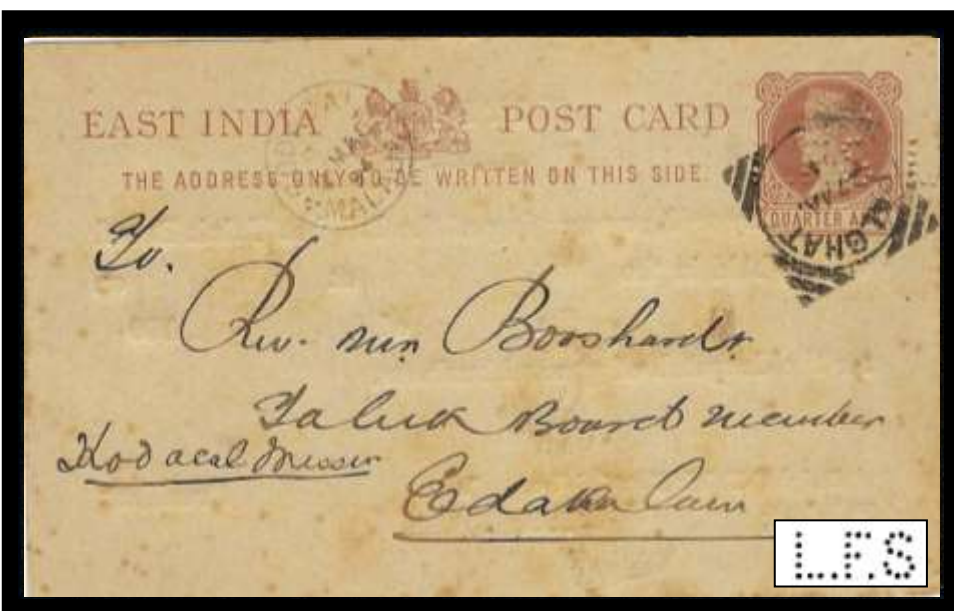 EAST INDIA POST CARD
THE ADDRESS ONLY TO BE WRITTEN ON THIS SIDE.
QUARTER A
GHAT
To.
Rev. Booshardt
Taluk Board member
Kodacal
L.F.S